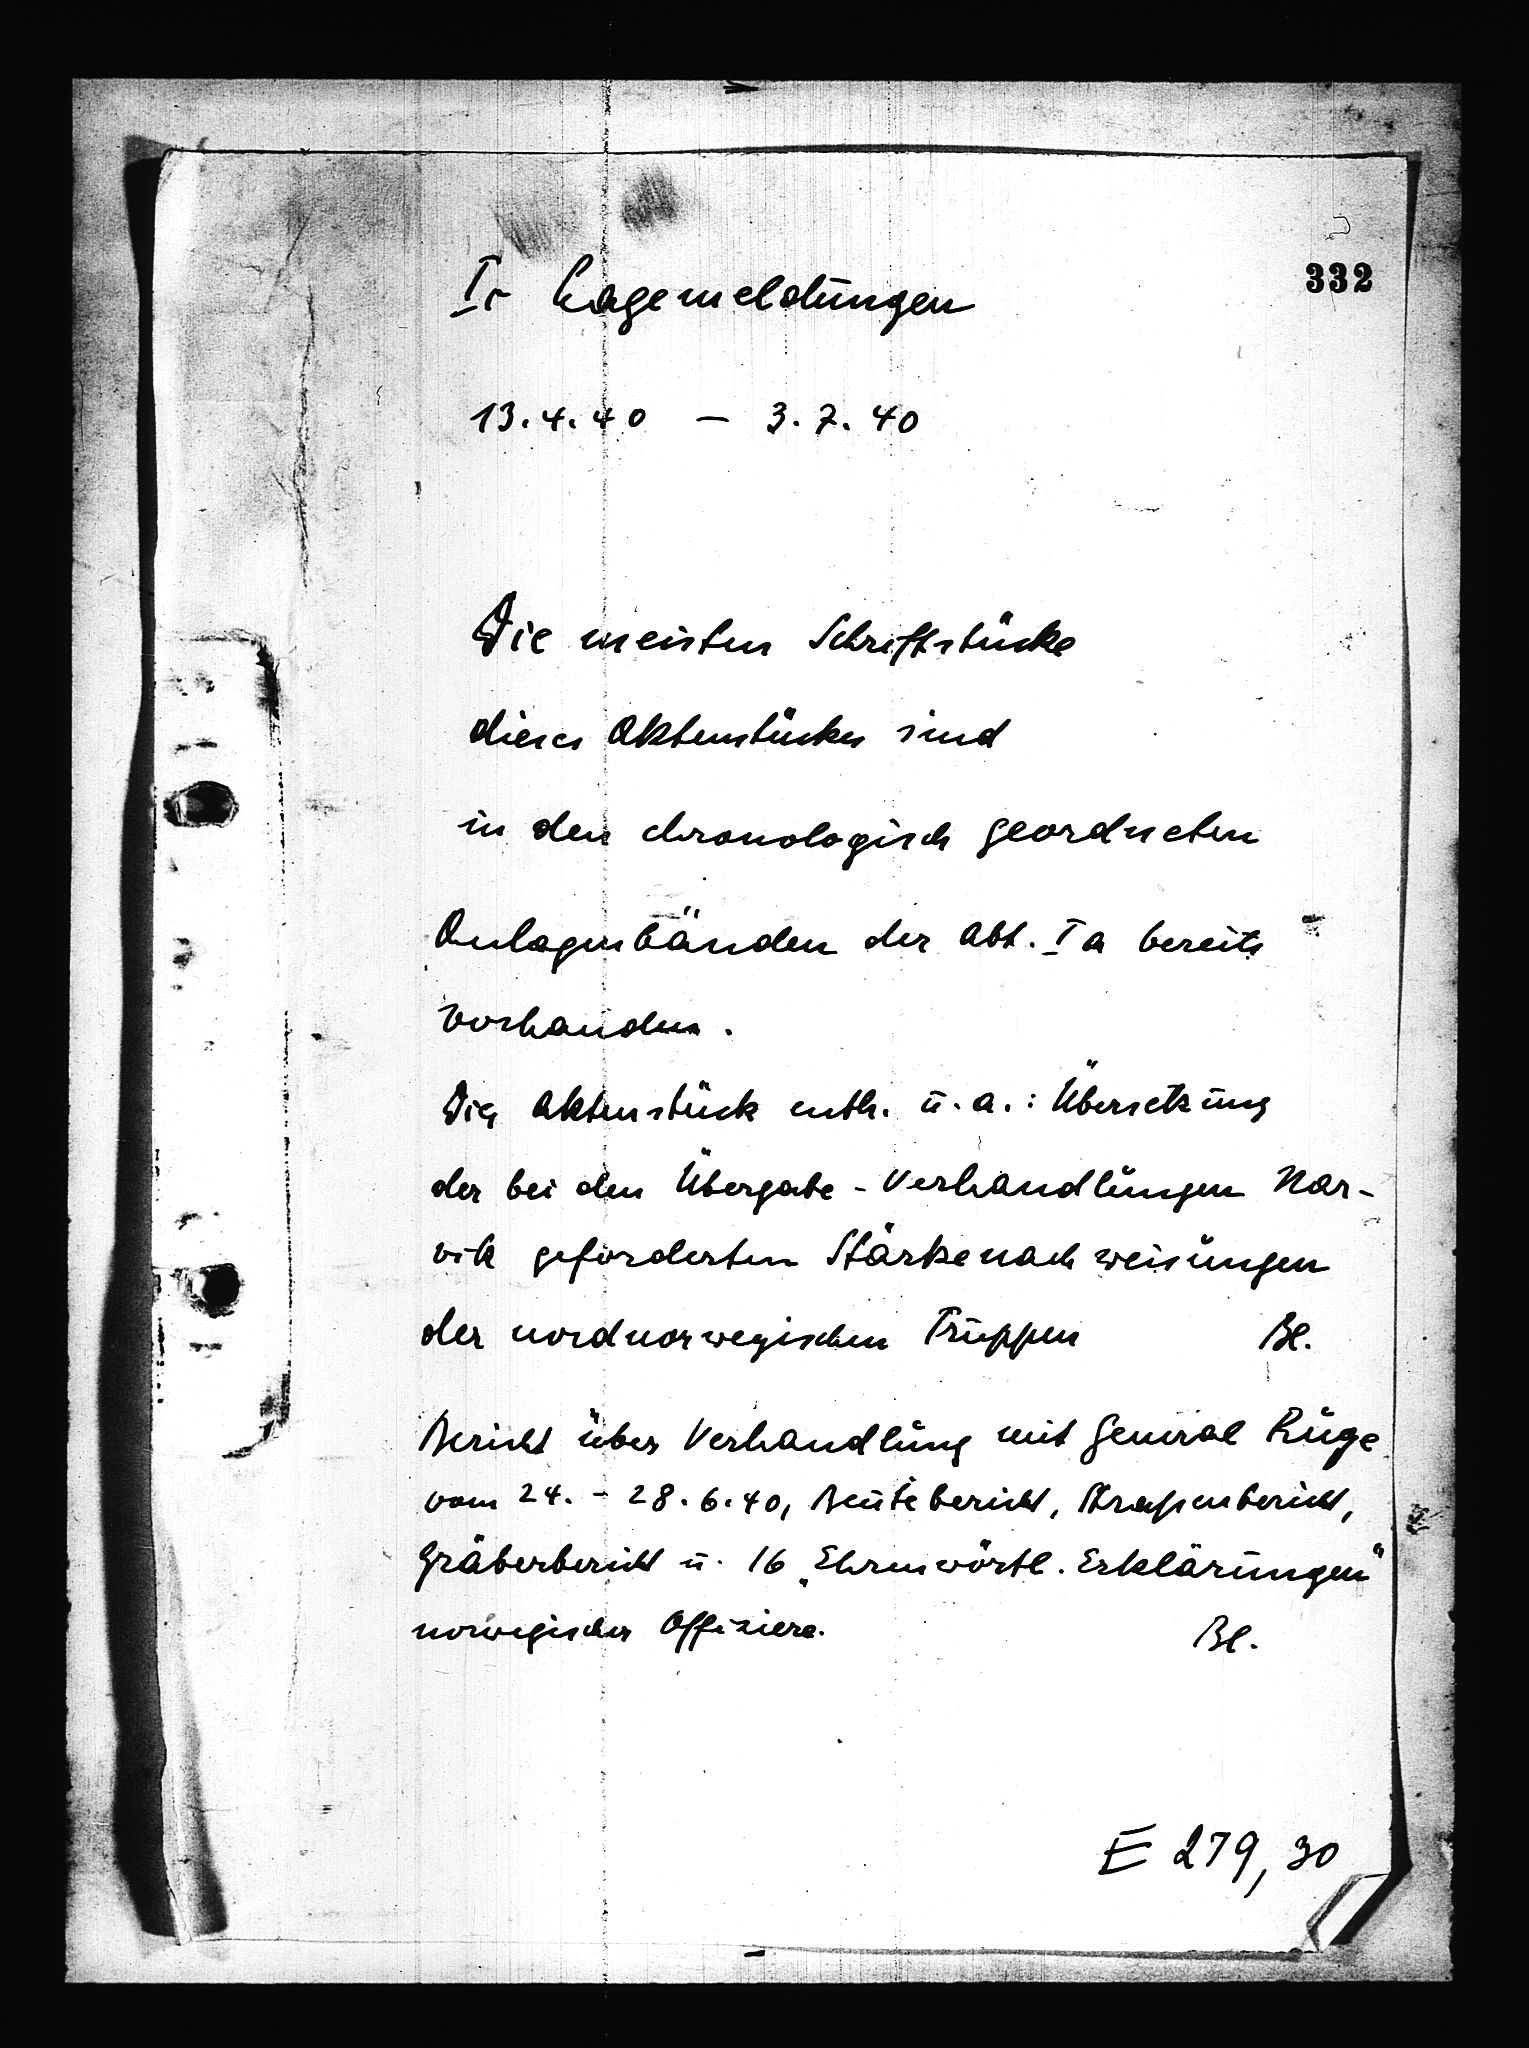 332
Ic Lagemeldungen
13.4.40 – 3.7.40
Die meisten Schriftstücke
dieses Aktenstückes sind
in den chronologisch geordneten
Anlagenbänden der Abt. Ia bereits
vorhanden.
Dies Aktenstück enth. u. a.: Übersetzung
der bei den Übergabe-Verhandlungen Nar-
vik geforderten Stärkenachweisungen
der nordnorwegischen Truppen Bl.
Bericht über Verhandlung mit General Ruge
vom 24. – 28.6.40, Beutebericht, Strassenbericht,
Gräberbericht u. 16 „Ehrenwörtl. Erklärungen“
norwegischer Offiziere. Bl.
E 279,30